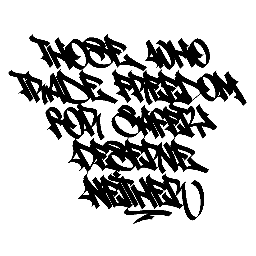 THOSE WHO
TRADE FREEDOM
FOR SAFETY
DESERVE
NEITHER